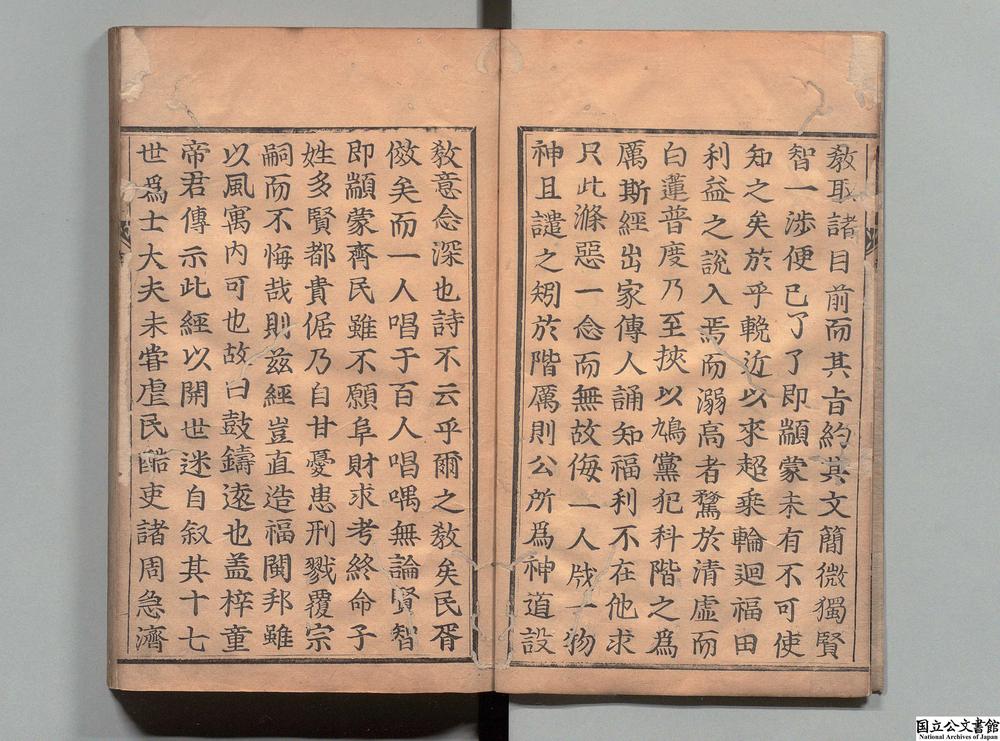 教取諸目前而其旨約其文簡微獨賢
智一涉便已了了即顓蒙未有不可使
知之矣於乎輓近以來超乗輪迴福田
利益之說入焉而溺高者騖於清虛而
白蓮普度乃至挾以鳩黨犯科階之爲
厲斯經出家傳人誦知福利不在他求
只此滌惡一念而無故侮一人戕一物
神且譴之矧於階厲則公所爲神道設
教意念深也詩不云乎爾之教矣民胥
傚矣而一人唱于百人唱喁無論賢智
即顓蒙齊民雖不願阜財求考終命子
姓多賢都貴倨乃自甘憂患刑戮覆宗
嗣而不悔哉則茲經豈直造福閩邦雖
以風寓内可也故曰鼓鑄遠也盖梓童
帝君傳示此經以開世迷自叙其十七
世爲士大夫未甞虐民酷吏諸周急濟
国立公文書館
National Archives of Japan